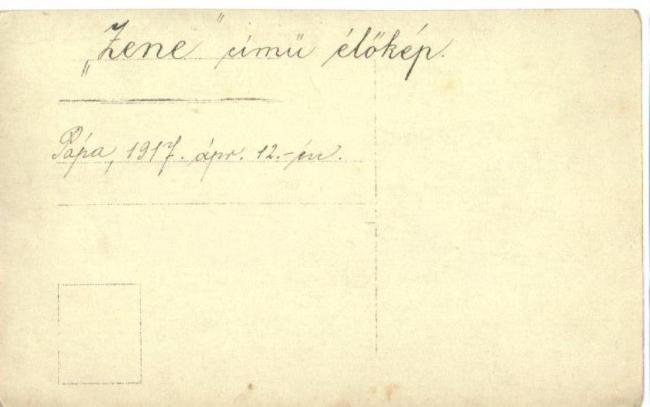 „Zene" című élőkép.
Pápa, 1917. ápr. 12.-én.